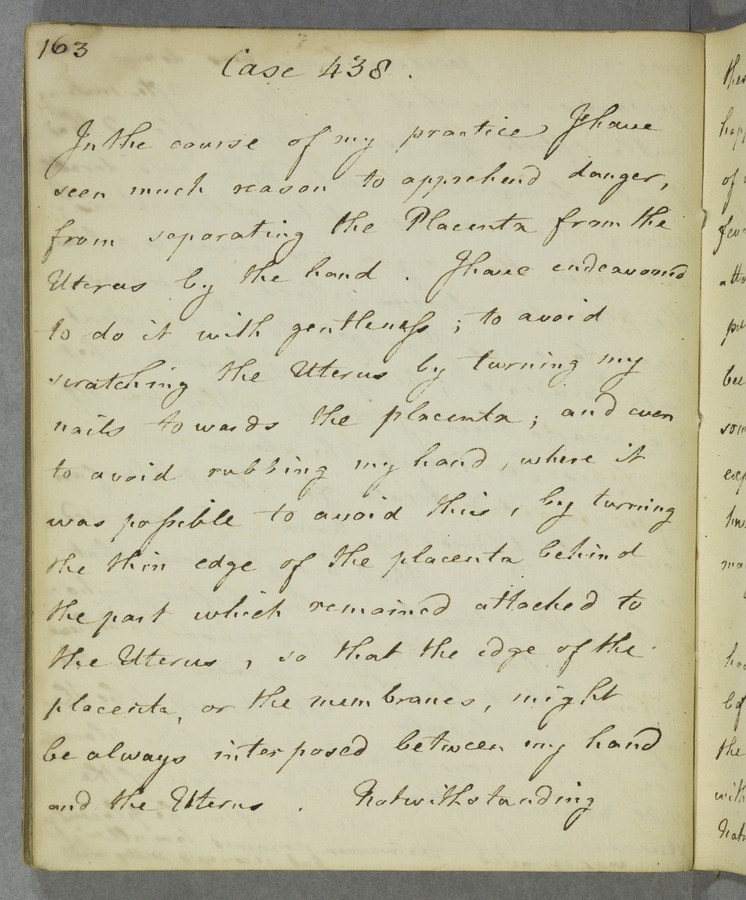 163
Case 438.
In the course of my practice I have
seen much reason to apprehend danger,
from separating the Placenta from the
Uterus by the hand. I have endeavourd
to do it with gentleness; to avoid
scratching the Uterus by turning my
nails towards the placenta; and even
to avoid rubbing my hand, where it
was possible to avoid this, by turning
the thin edge of the placenta behind
the part which remained attached to
the Uterus, so that the edge of the
placenta, or the membranes, might
be always interposed between my hand
and the Uterus. Notwithstanding